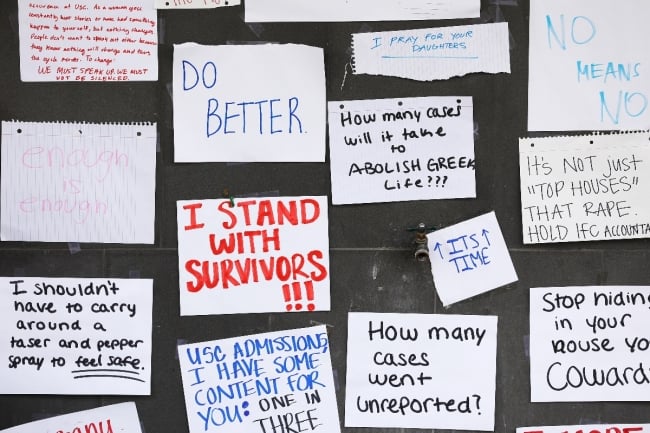 occurance at USC. As a woman you
constantly hear stories or have had something
happen to yourself, but nothing changes.
People don't want to speak out either because
they know nothing will change and thus
the cycle
To change:
WE MUST SPEAK UP. WE MUST
NOT BE SILENCED.
I PRAY FOR YOUR
DAUGHTERS
NO
MEANS
NO
DO
BETTER.
How many cases
will it take to
ABOLISH GREEK
Life???
enough
is
enough
IT'S NOT just
"TOP HOUSES"
THAT RAPE.
HOLD IFC ACCOUNTA
I STAND
WITH
SURVIVORS
!!!
↑ITS↑
TIME
I shouldn't
have to carry
around a
taser and pepper
spray to feel safe.
USC ADMISSIONS,
I HAVE SOME
CONTENT FOR
YOU: ONE IN
THREE
How many
cases
went
unreported?
Stop hiding
in your
house yo
Coward